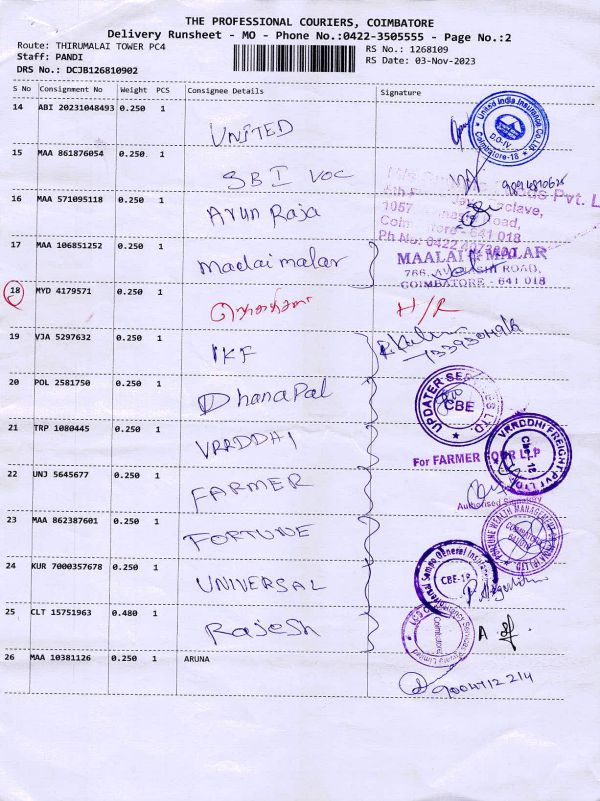 THE PROFESSIONAL COURIERS, COIMBATORE
Delivery Runsheet - MO - Phone No.:0422-3505555 - Page No.:2
Route: THIRUMALAI TOWER PC4
RS No.: 1268109
Staff: PANDI
RS Date: 03-Nov-2023
DRS No.: DCJB126810902
S No Consignment No Weight PCS Consignee Details Signature
14 ABI 20231048493 0.250 1 UNITED
United India Insurance Co. Ltd. D.O-IV Coimbatore-18
15 MAA 861876054 0.250 1 SBI VOC
16 MAA 571095118 0.250 1 Arun Raja
Pvt. L
1057
641 018
Ph No: 0422
17 MAA 106851252 0.250 1 maalai malar
MAALAI MALAR
766, AVINASHI ROAD,
COIMBATORE - 641 018
18 MYD 4179571 0.250 1 H/R
19 VJA 5297632 0.250 1 IKF
20 POL 2581750 0.250 1 Dhanapal
UPDATER SER LTD. CBE
21 TRP 1080445 0.250 1 VRRDDHI
VRRDDHI FREIGHT PVT LTD. CBE-18
For FARMER LLP
22 UNJ 5645677 0.250 1 FARMER
Authorised Signatory
23 MAA 862387601 0.250 1 FORTUNE
FORTUNE WEALTH MANAGEMENT COIMBATORE
24 KUR 7000357678 0.250 1 UNIVERSAL
Universal Sompo General Insurance CBE-18
25 CLT 15751963 0.480 1 Rajesh
Coimbatore Limited
26 MAA 10381126 0.250 1 ARUNA
9004712214